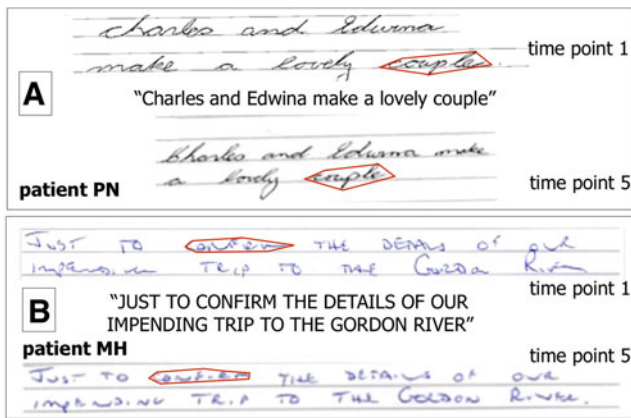 charles and Edwina
time point 1
make a lovely couple.
A
"Charles and Edwina make a lovely couple"
Charles and Edwina make
a lovely couple
patient PN
time point 5
JUST TO CONFIRM THE DETAILS OF OUR
IMPENDING TRIP TO THE GORDON RIVER
time point 1
B
"JUST TO CONFIRM THE DETAILS OF OUR
IMPENDING TRIP TO THE GORDON RIVER"
patient MH
time point 5
JUST TO CONFIRM THE DETAILS OF OUR
IMPENDING TRIP TO THE GORDON RIVER.